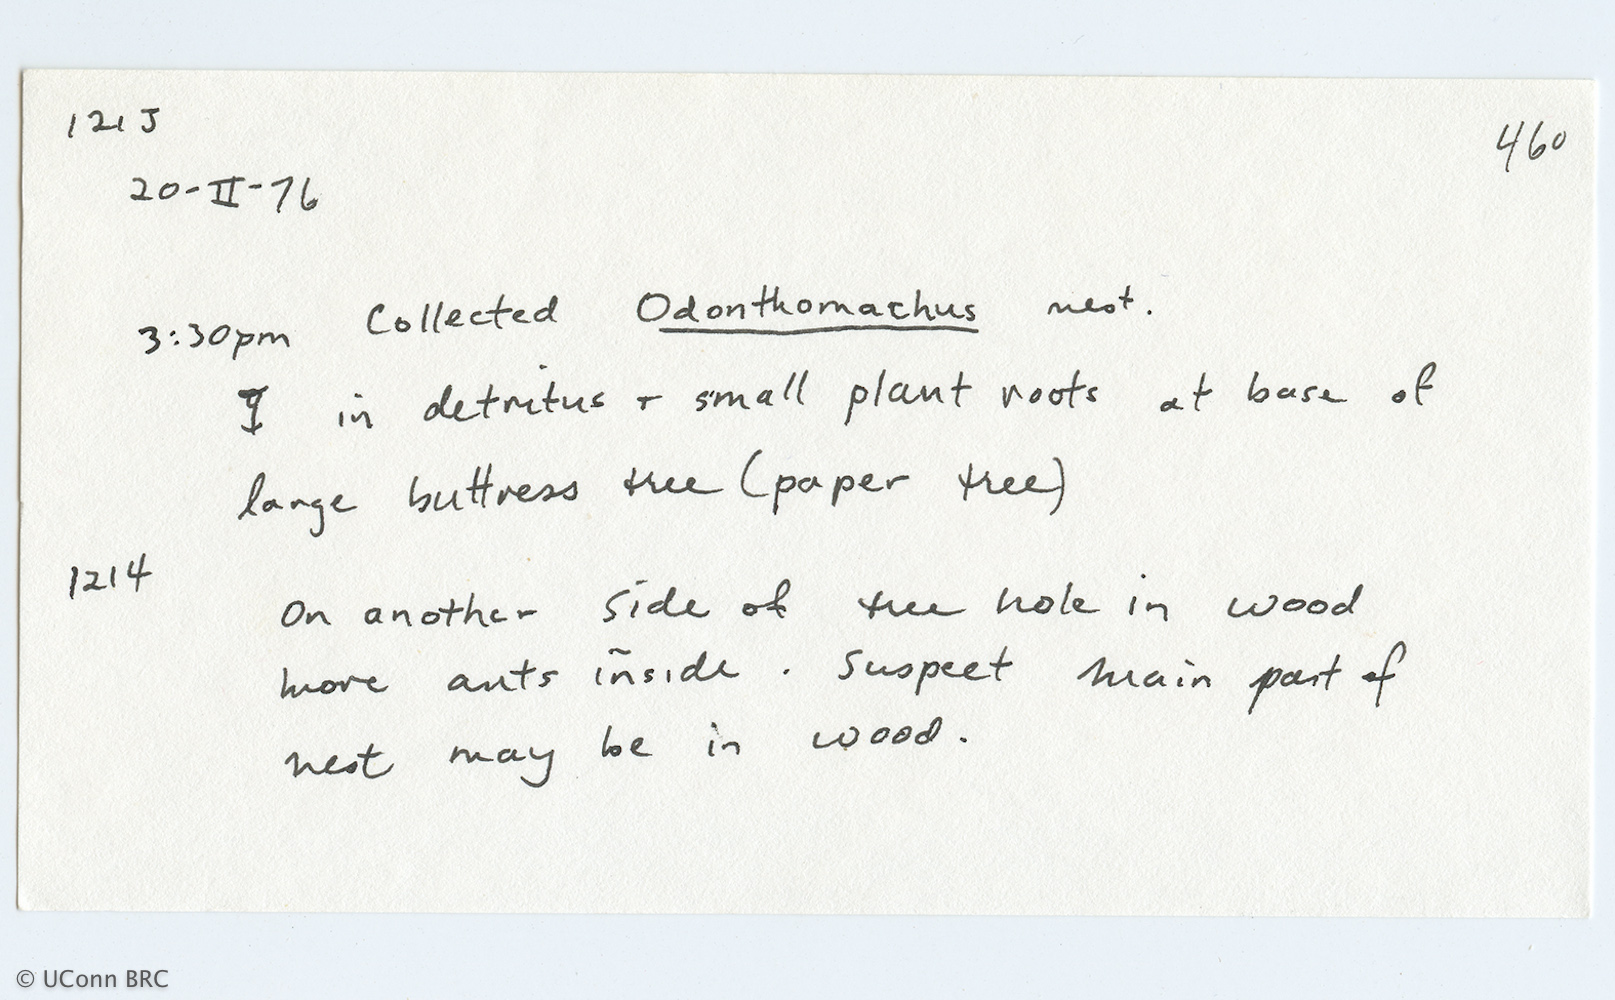 1213
460
20-II-76
3:30pm Collected Odonthomachus nest.
in detritus + small plant roots at base of
large buttress tree (paper tree)
1214
On another side of tree hole in wood
more ants inside. Suspect main part of
nest may be in wood.
© UConn BRC